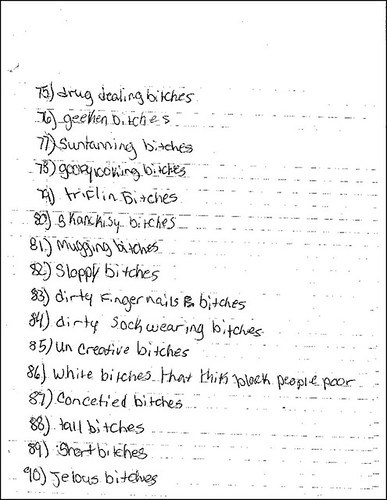 75) drug dealing bitches
76) geeken bitches
77) Suntanning bitches
78) gooey looking bitches
79) triflin bitches
80) skankisy bitches
81) Mugging bitches
82) Sloppy bitches
83) dirty Finger nails bitches
84) dirty sock wearing bitches
85) un creative bitches
86) white bitches that think black people poor
87) Concetied bitches
88) tall bitches
89) Short bitches
90) Jelous bitches